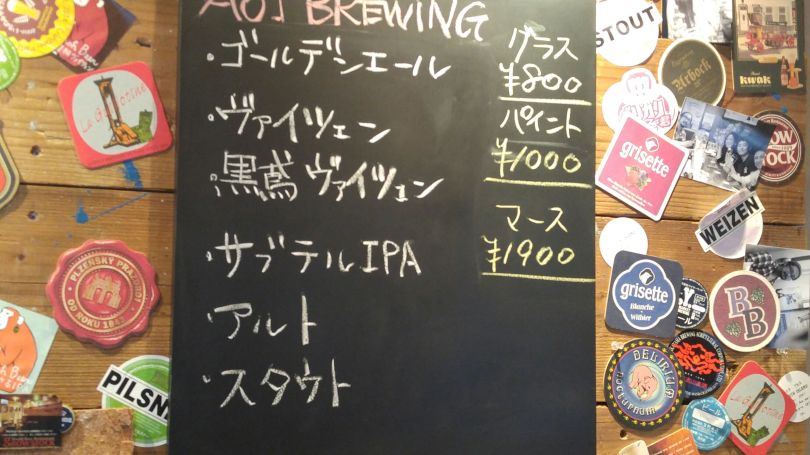 AOI BREWING
・ゴールデンエール
・ヴァイツェン
・黒鳶ヴァイツェン
・サブテルIPA
・アルト
・スタウト
グラス
¥800
パイント
¥1000
マース
¥1900
La Guillotine
PLZEŇSKÝ PRAZDROJ
OD ROKU 1842
PILSN
STOUT
kwak
Arbock
grisette
WEIZEN
grisette
Blanche
Witbier
BB
DELIRIUM
NOCTURNUM
La Guillotine
ROCK